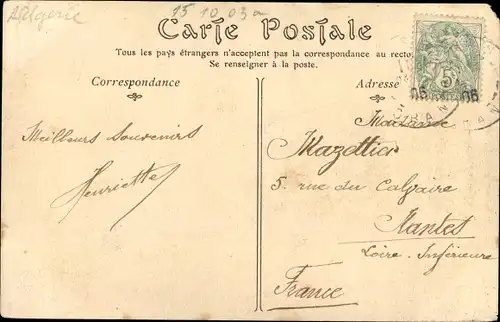 Algerie
15 10 03
Carte Postale
Tous les pays étrangers n'acceptent pas la correspondance au recto
Se renseigner à la poste.
Correspondance
Adresse
Meilleurs Souvenirs
Henriette
Madame
Mazettier
5. rue du Calvaire
Nantes
Loire-Inférieure
France
5
06 06